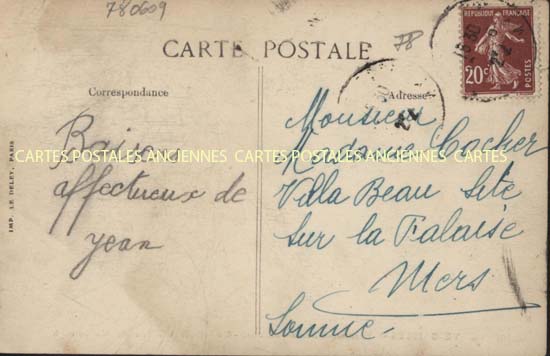 780609
CARTE POSTALE
78
REPUBLIQUE FRANÇAISE
20c
POSTES
Correspondance
Adresse
Baisers
affectueux de
Jean
Monsieur
Madame Cacher
Villa Beau Site
sur la Falaise
Mers
Somme
CARTES POSTALES ANCIENNES CARTES POSTALES ANCIENNES CARTES
IMP. LE DELEY, PARIS